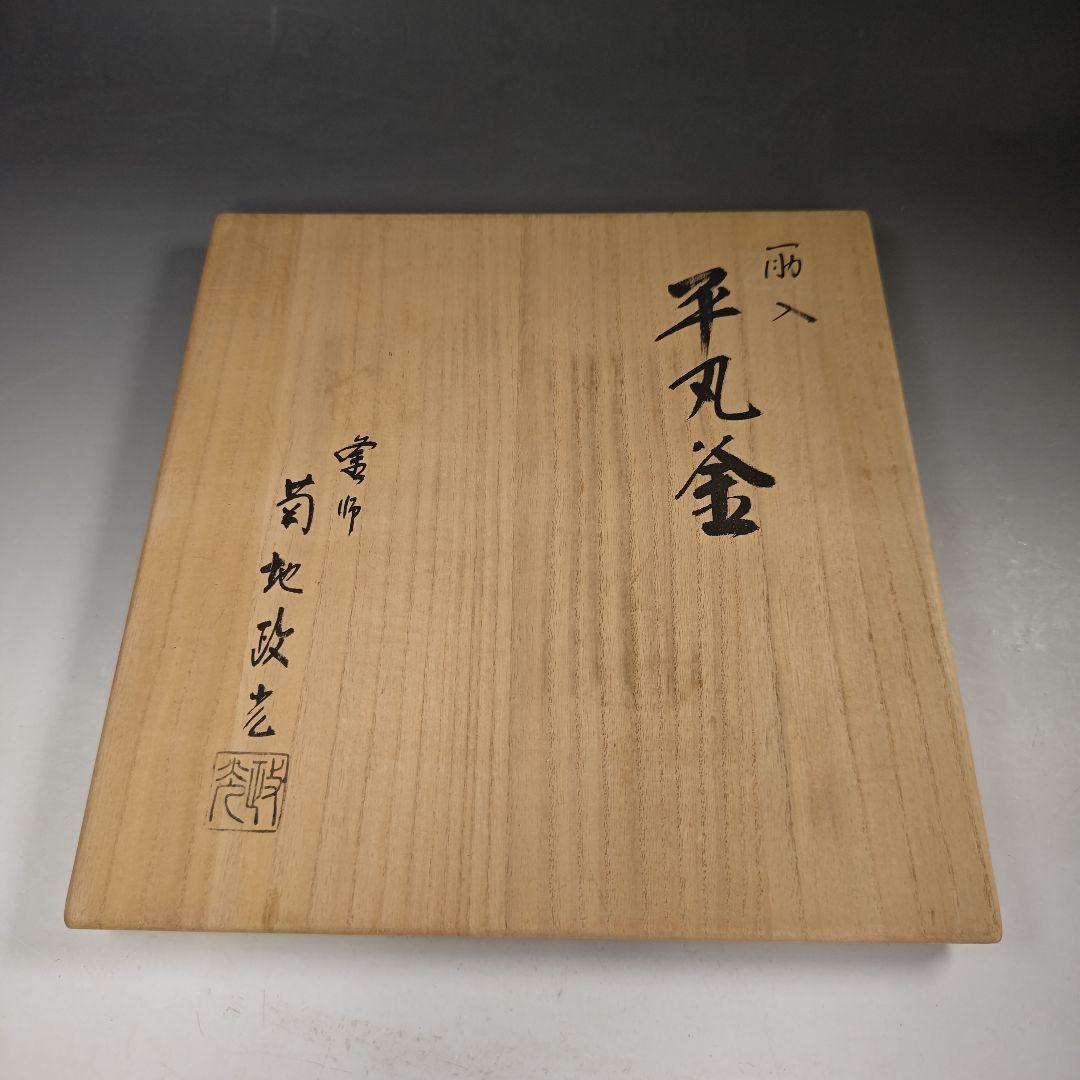 平丸釜
釜師
菊地政光
政光